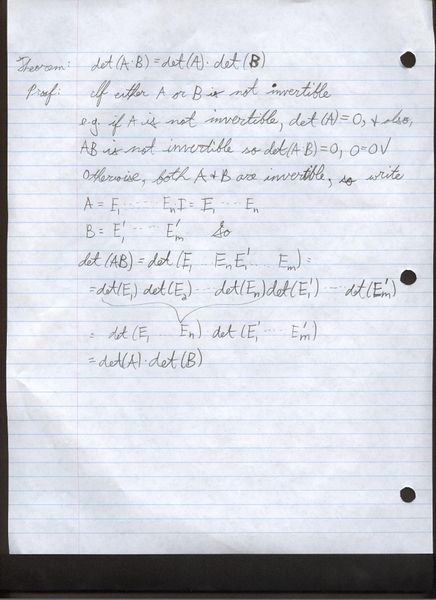 Theorem: det(A·B) = det(A)· det(B)
Proof: If either A or B is not invertible
e.g. if A is not invertible, det(A)=0, & also,
AB is not invertible so det(A·B)=0, 0=0√
Otherwise, both A & B are invertible, so write
A = E₁ ····· EₙI = E₁ ···· Eₙ
B = E₁' ····· Eₘ' So
det(AB) = det(E₁ ... EₙE₁' ... Eₘ) =
= det(E₁) det(E₂) ··· det(Eₙ) det(E₁') ··· det(Eₘ')
= det(E₁ ... Eₙ) det(E₁' ··· Eₘ')
= det(A)·det(B)